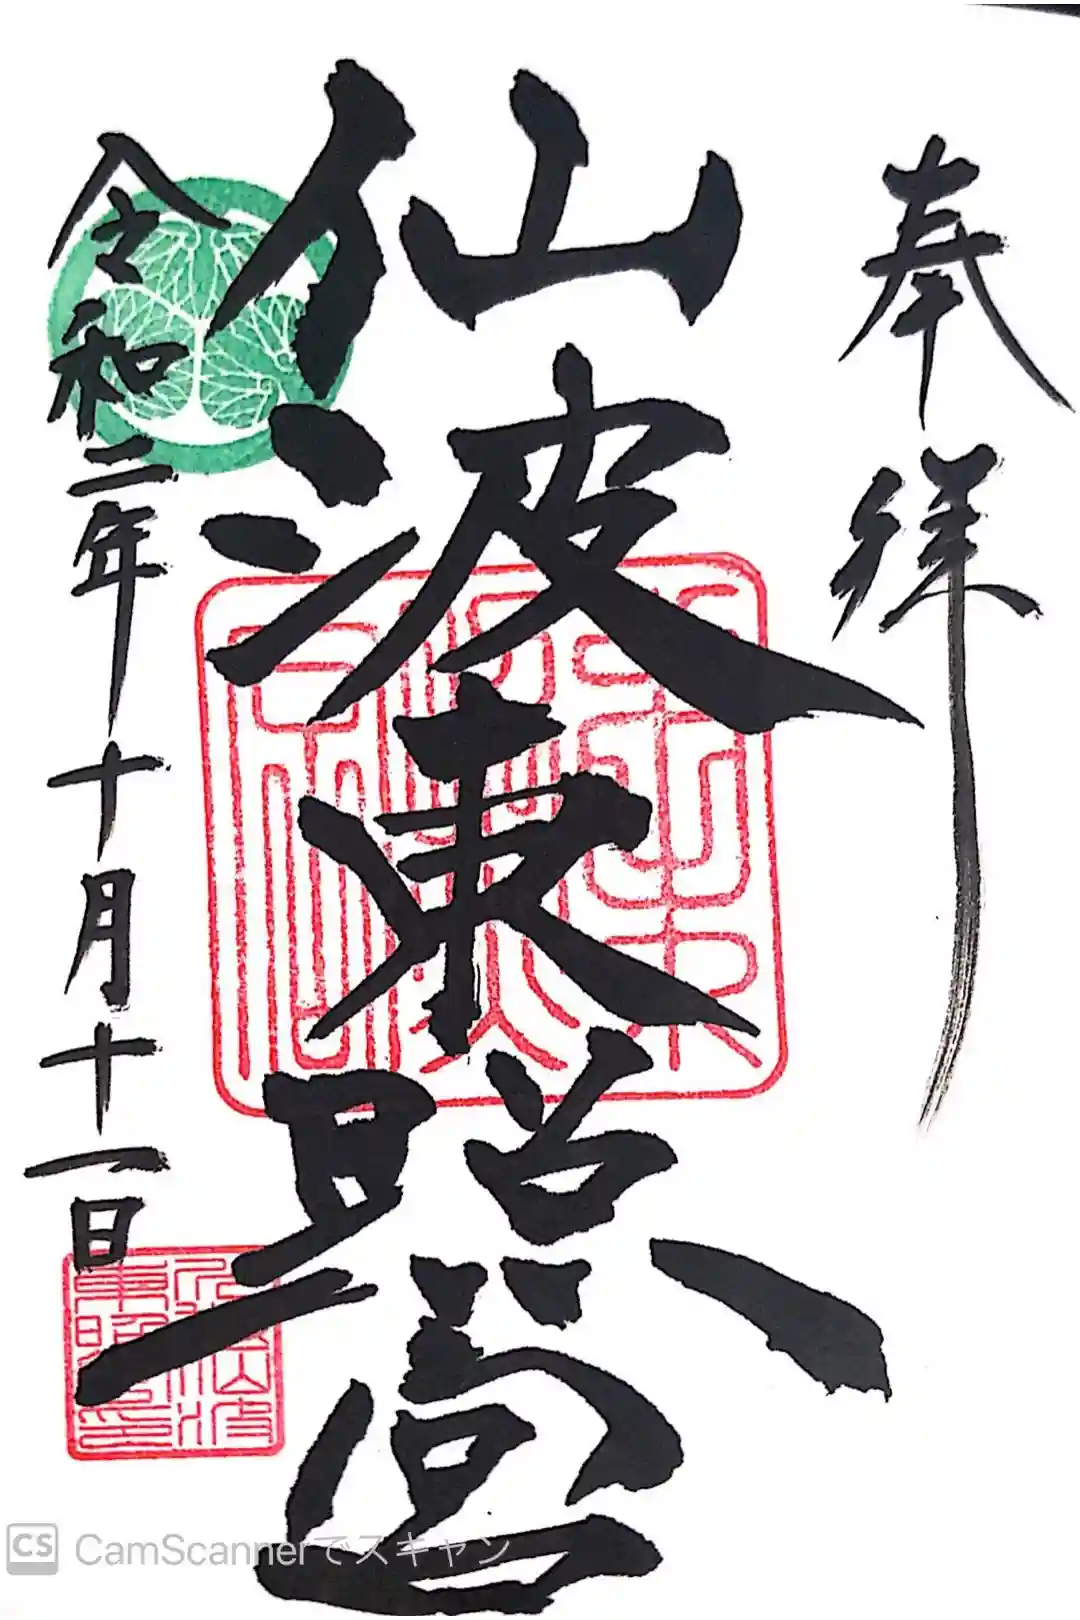 奉拝
仙波東照宮
令和二年十月十一日
CS CamScannerでスキャン